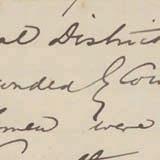 al District
ounded & Cou
men were